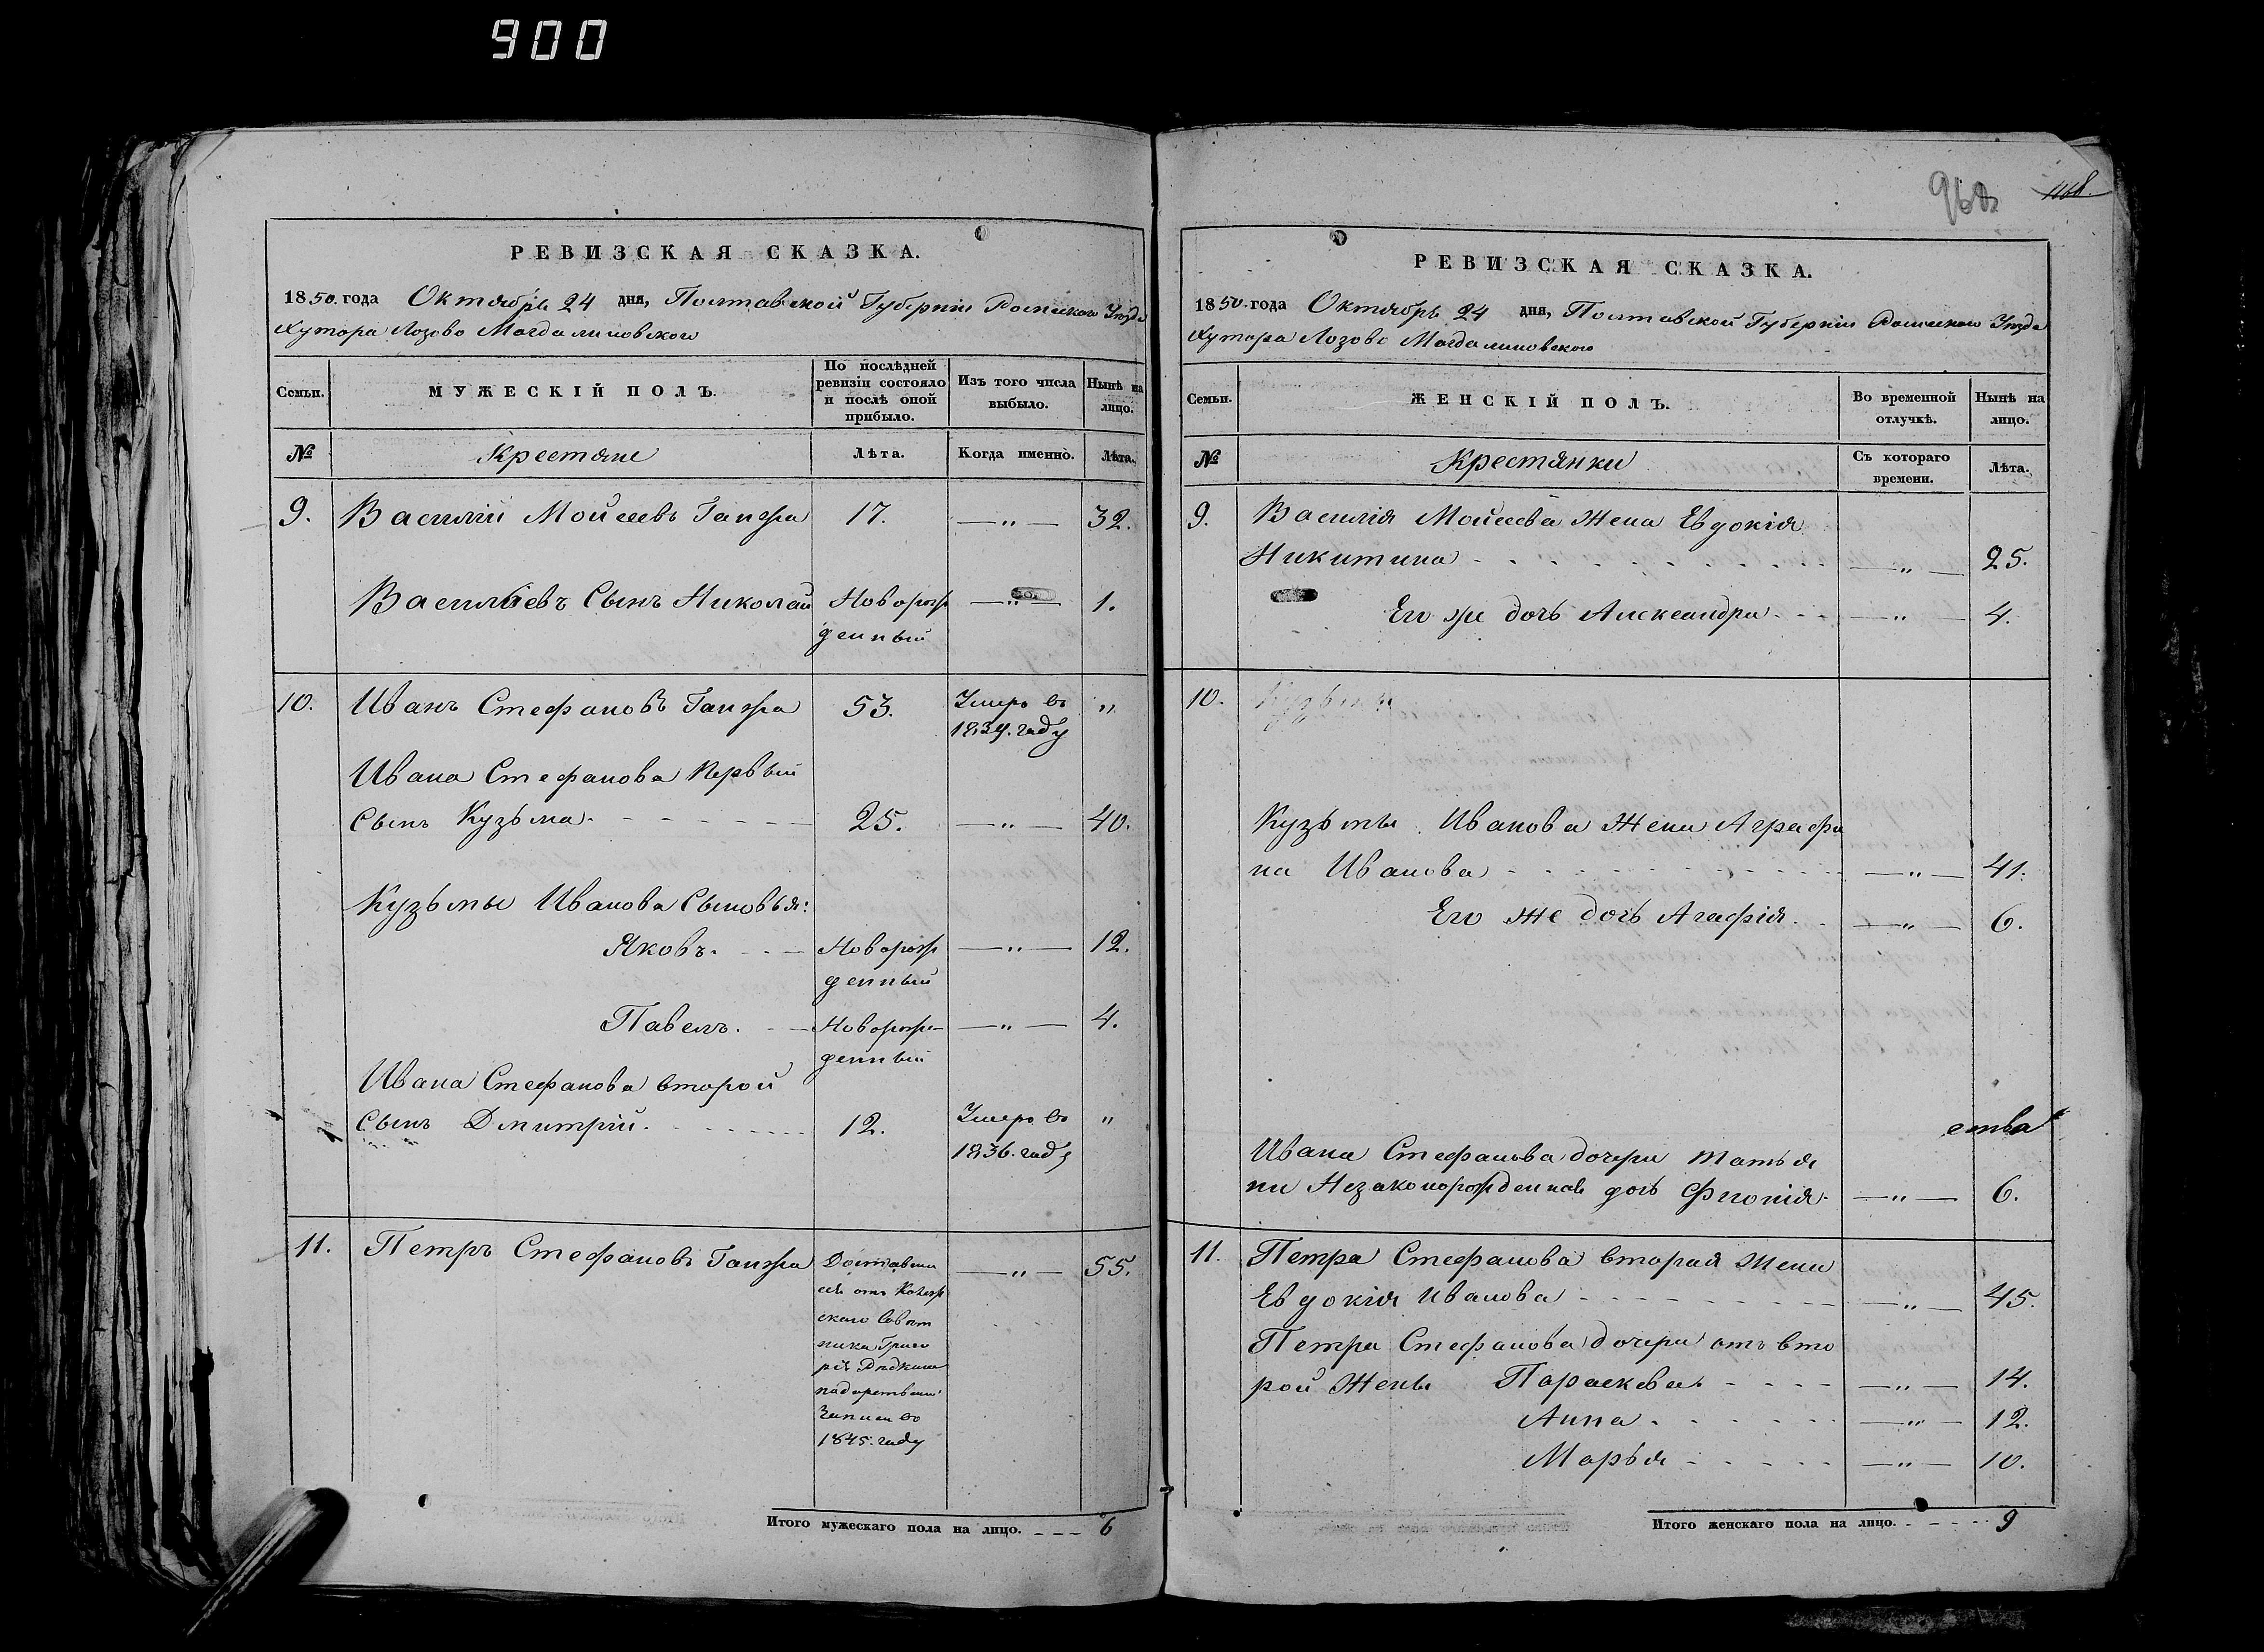 900
968 1168.
РЕВИЗСКАЯ СКАЗКА.
1850. года Октябрь 24 дня, Полтавской Губерніи Роменскаго Уезда
Хутора Лозово Магдалиновского
Семьи. МУЖЕСКІЙ ПОЛЪ. По послѣдней ревизіи состояло и послѣ оной прибыло. Изъ того числа выбыло. Нынѣ на лицо.
№ Крестяне Лѣта. Когда именно. Лѣта.
9. Василій Мойсеевъ Ганжа 17. —„— 32.
Васильевъ Сынъ Николай Новорож —„— 1.
денный
10. Иванъ Стефановъ Ганжа 53. Умеръ въ „
1839. году
Ивана Стефанова Первый
Сынъ Кузьма. 25. —„— 40.
Кузьмы Иванова Сыновья:
Яковъ. Новорож —„— 12.
денный
Павелъ. Новорож- —„— 4.
денный
Ивана Стефанова второй
Сынъ Дмитрій. 12. Умеръ въ „
1836. году
11. Петръ Стефановъ Ганжа Доставши —„— 55.
ся отъ Колеж
скаго Совѣт
ника Григо
рія
1845. году
Итого мужескаго пола на лицо. 6
РЕВИЗСКАЯ СКАЗКА.
1850. года Октябрь 24 дня, Полтавской Губерніи Роменскаго Уезда
Хутора Лозово Магдалиновского
Семьи. ЖЕНСКІЙ ПОЛЪ. Во временной отлучкѣ. Нынѣ на лицо.
№ Крестянки Съ котораго времени. Лѣта.
9. Василія Мойсеева Жена Евдокія
Никитина —„— 25.
Его же дочь Александра —„— 4.
10. Кузьмы
Кузьмы Иванова Жена Аграфи
на Иванова —„— 41.
Его же дочь Агафія. —„— 6.
ства
Ивана Стефанова дочери Татья
ни Незаконорожденная дочь Фионія —„— 6.
11. Петра Стефанова вторая Жена
Евдокія Иванова —„— 45.
Петра Стефанова дочери отъ вто
рой Жены Параскева. —„— 14.
Анна. —„— 12.
Марья —„— 10.
Итого женскаго пола на лицо. 9